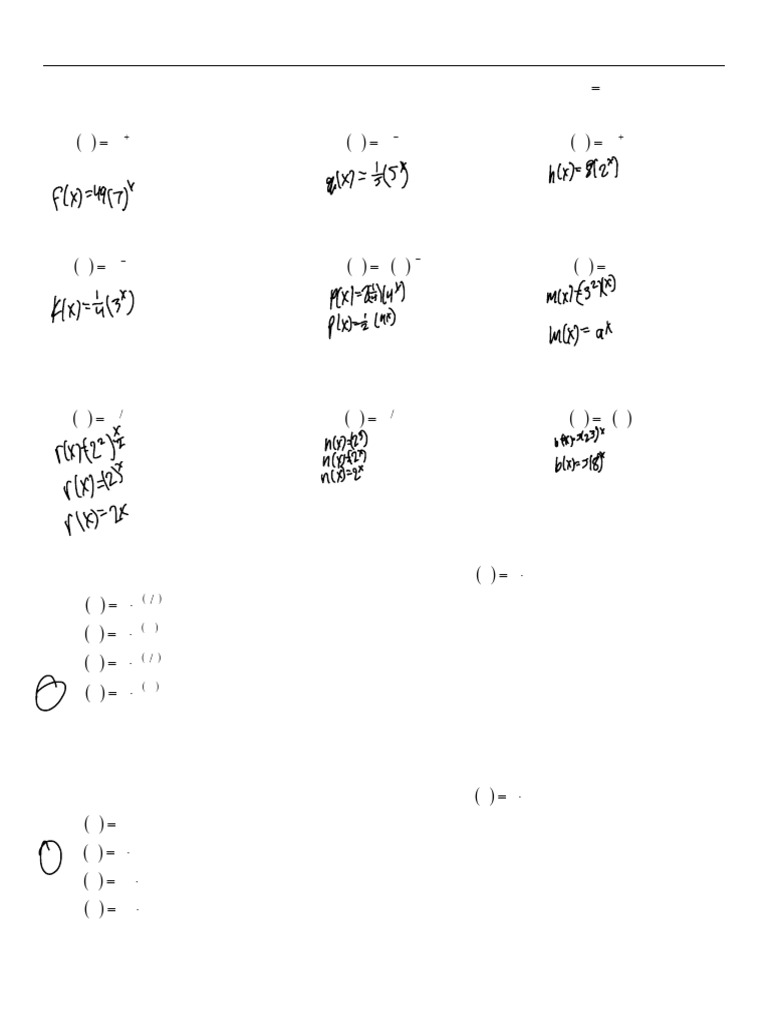 =
( ) = +
( ) = −
( ) = +
f(x)=49(7)^x
g(x)=1/5(5^x)
h(x)=8(2^x)
( ) = −
( ) = ( ) −
( ) =
k(x)=1/4(3^x)
m(x)=(3^2)(x)
p(x)=1/2(4^x)
m(x)=a^x
( ) = /
( ) = /
( ) = ( )
r(x)=(2^2)^x/2
r(x)=(2)^x
r(x)=2x
n(x)=(2^x)
n(x)=2^x
b(x)=3(8)^x
( ) = ·
( ) = · ( / )
( ) = · ( )
( ) = · ( / )
( ) = · ( )
( ) = ·
( ) =
( ) = ·
( ) = ·
( ) = ·